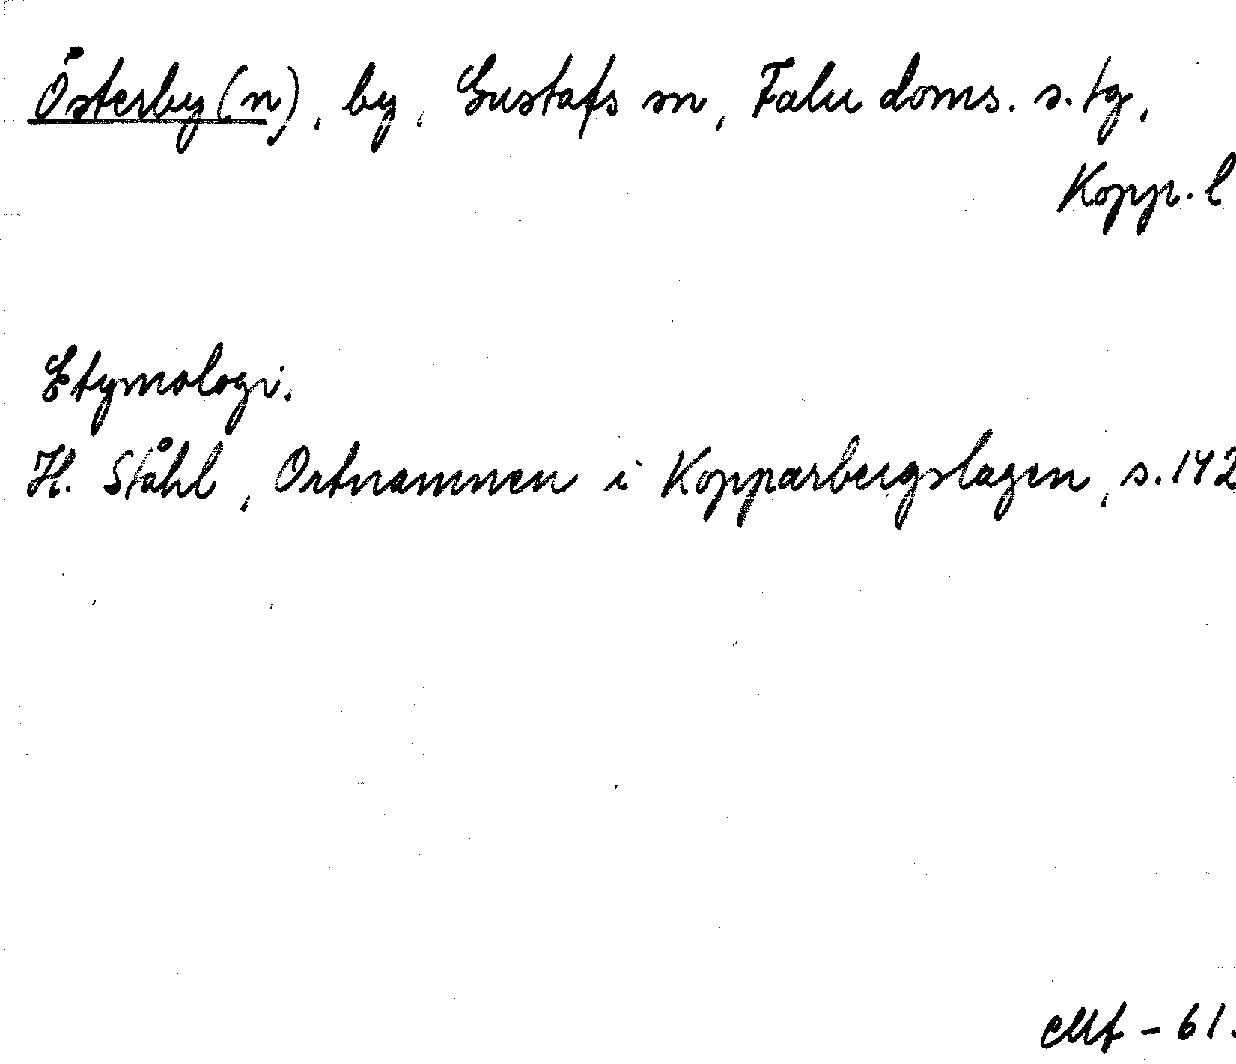 Österby(n), by, Gustafs sn, Falu doms. s. tg,
Kopp. l
Etymologi.
H. Ståhl, Ortnamnen i Kopparbergslagen, s. 142
-61.